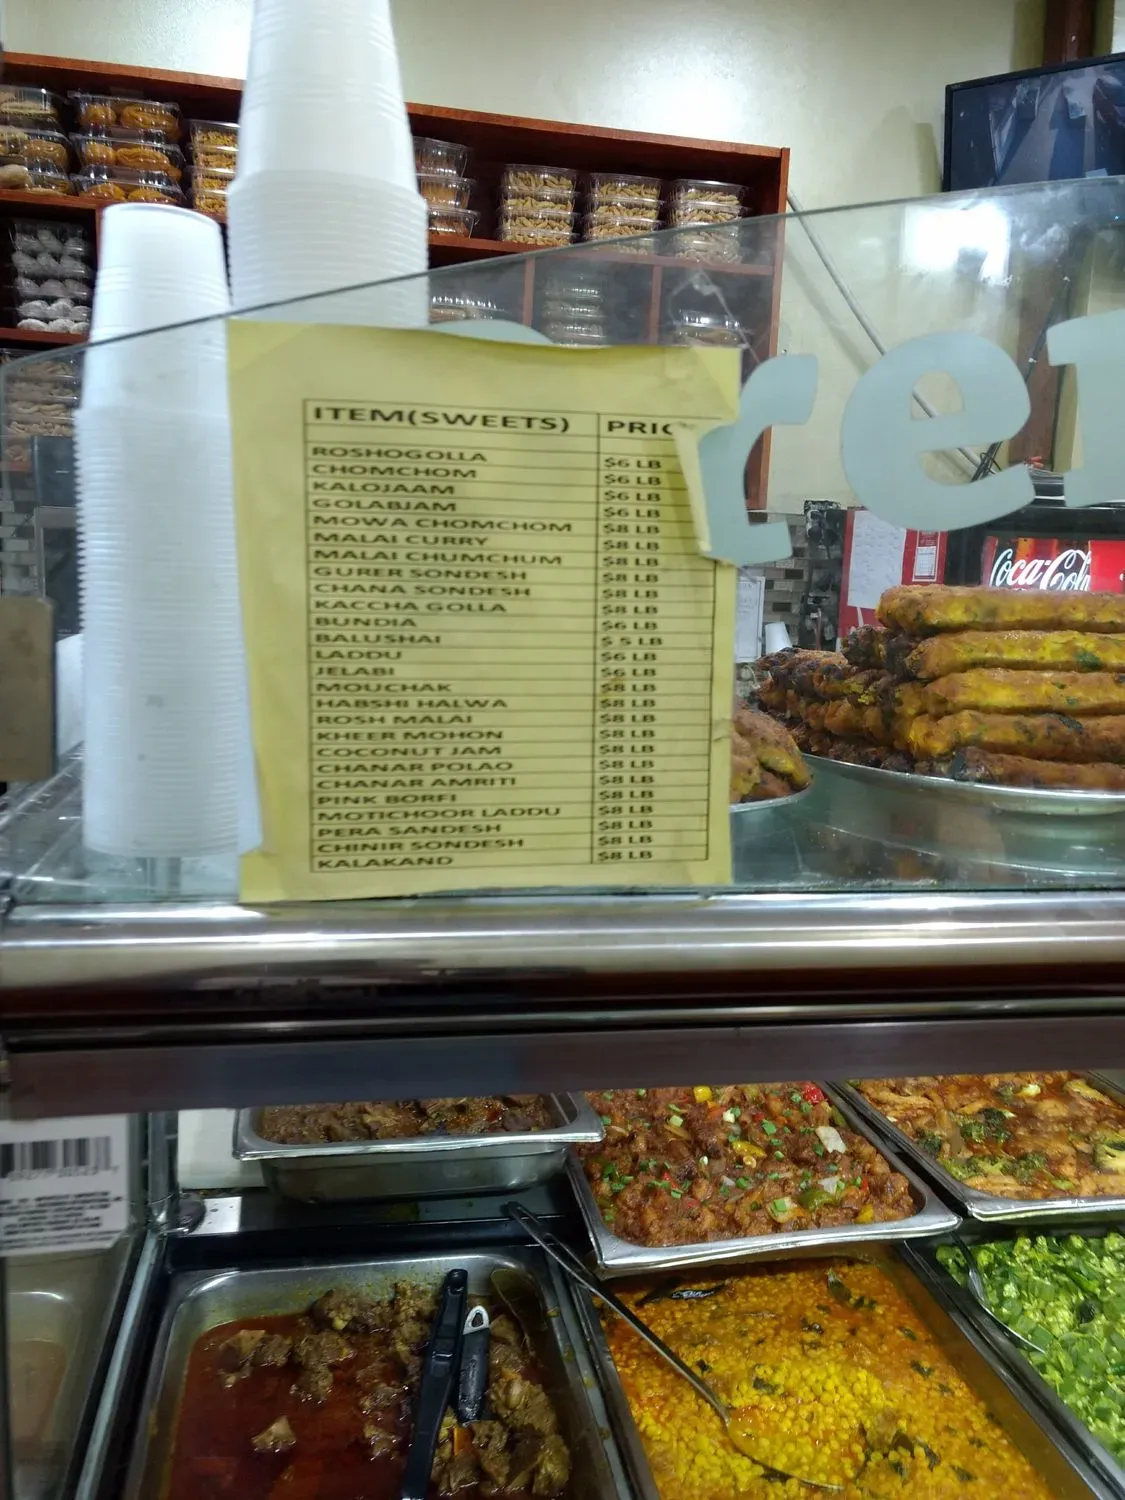 ITEM(SWEETS) PRIC
ROSHOGOLLA $6 LB
CHOMCHOM $6 LB
KALOJAAM $6 LB
GOLABJAM $6 LB
MOWA CHOMCHOM $8 LB
MALAI CURRY $8 LB
MALAI CHUMCHUM $8 LB
GURER SONDESH $8 LB
CHANA SONDESH $8 LB
KACCHA GOLLA $8 LB
BUNDIA $6 LB
BALUSHAI $ 5 LB
LADDU $6 LB
JELABI $6 LB
MOUCHAK $8 LB
HABSHI HALWA $8 LB
ROSH MALAI $8 LB
KHEER MOHON $8 LB
COCONUT JAM $8 LB
CHANAR POLAO $8 LB
CHANAR AMRITI $8 LB
PINK BORFI $8 LB
MOTICHOOR LADDU $8 LB
PERA SANDESH $8 LB
CHINIR SONDESH $8 LB
KALAKAND $8 LB
re
Coca-Cola